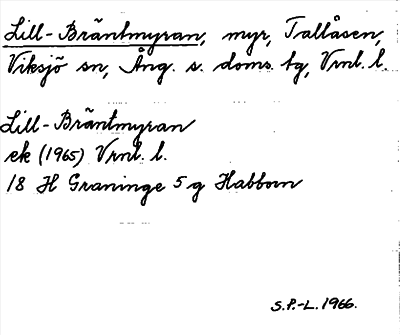 Lill-Bräntmyran, myr, Tallåsen,
Viksjö sn, Ång. s. doms. tg, Vrnl. l.
Lill-Bräntmyran
ek (1965) Vrnl. l.
18 H Graninge 5 g Habborn
S.P.-L. 1966.